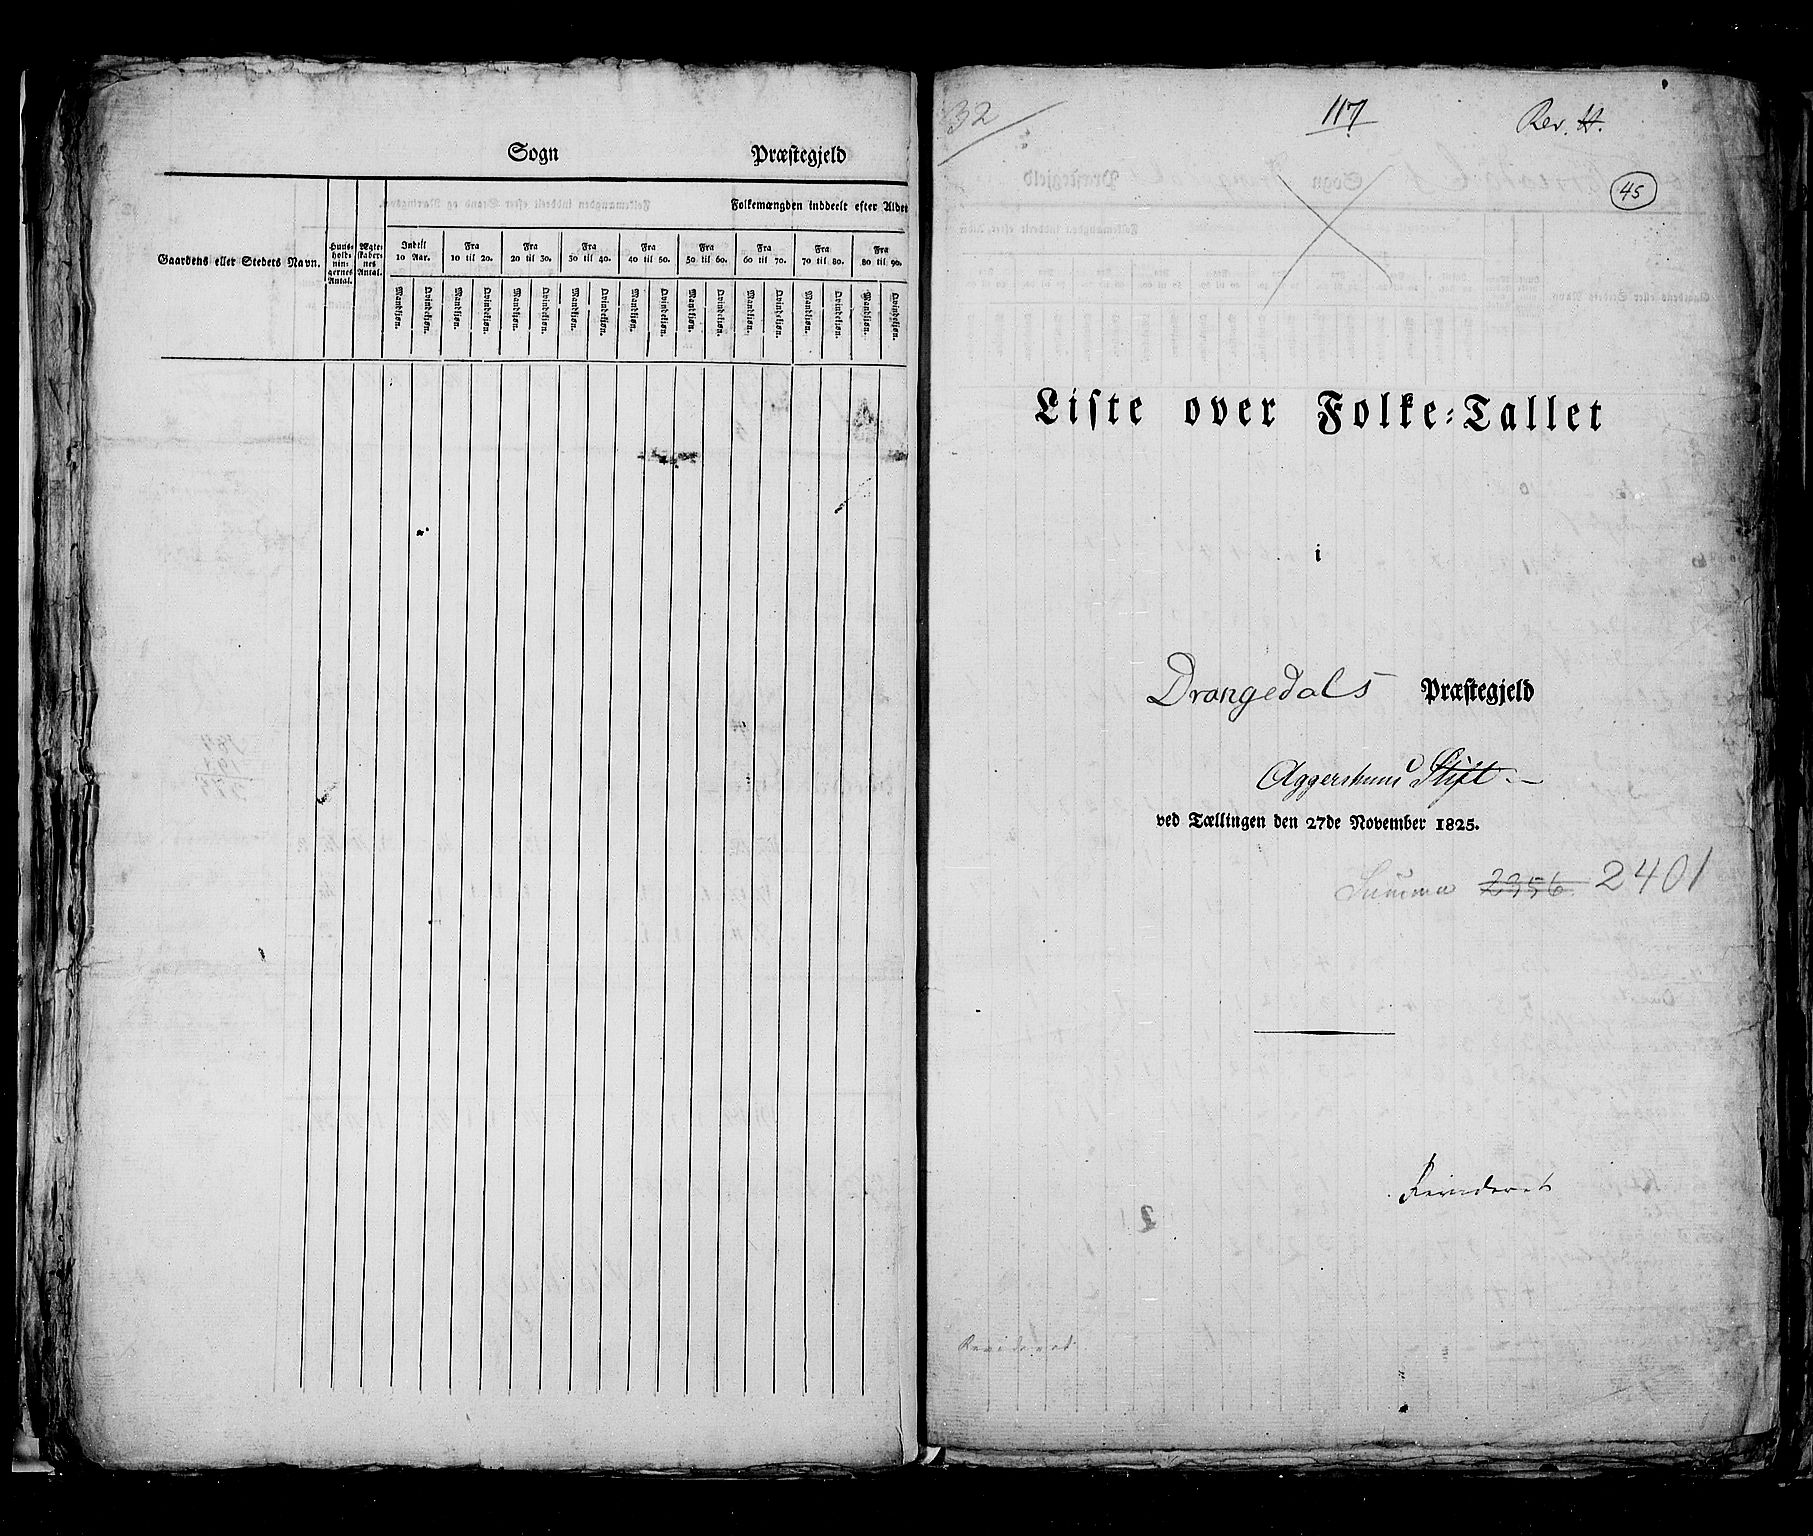 Sogn Præstegjeld
Folkemængden inddeelt efter Alder
Gaardens eller Stedets Navn.
Huus-
hold-
nin-
gernes
Antal.
Ægte-
skaber-
nes
Antal.
Indtil
10 Aar.
Fra
10 til 20.
Fra
20 til 30.
Fra
30 til 40.
Fra
40 til 50.
Fra
50 til 60.
Fra
60 til 70.
Fra
70 til 80.
Fra
80 til 90.
Mandkjøn. Qvindekjøn. Mandkjøn. Qvindekjøn. Mandkjøn. Qvindekjøn. Mandkjøn. Qvindekjøn. Mandkjøn. Qvindekjøn. Mandkjøn. Qvindekjøn. Mandkjøn. Qvindekjøn. Mandkjøn. Qvindekjøn. Mandkjøn. Qvindekjøn.
32 117 Rev. H.
45
Liste over Folke-Tallet
i
Drangedals Præstegjeld
Aggershuus Stift
ved Tællingen den 27de November 1825.
Summa 2356 2401
Revideret
Revideret